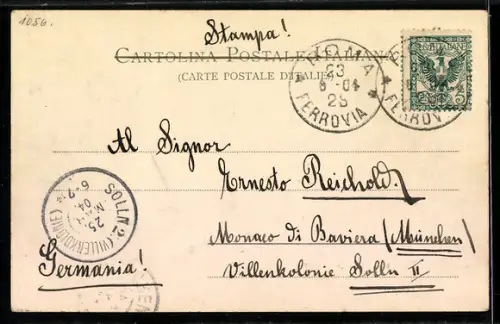 1056.
Stampa!
CARTOLINA POSTALE ITALIANA
(CARTE POSTALE D'ITALIE)
ROMA
23
6-04
2S
FERROVIA
FERROV
Al Signor
Ernesto Reichold
Monaco di Baviera (München)
Villenkolonie Solln II
Germania!
SOLLN 2 (VILLENKOLONIE)
25
04